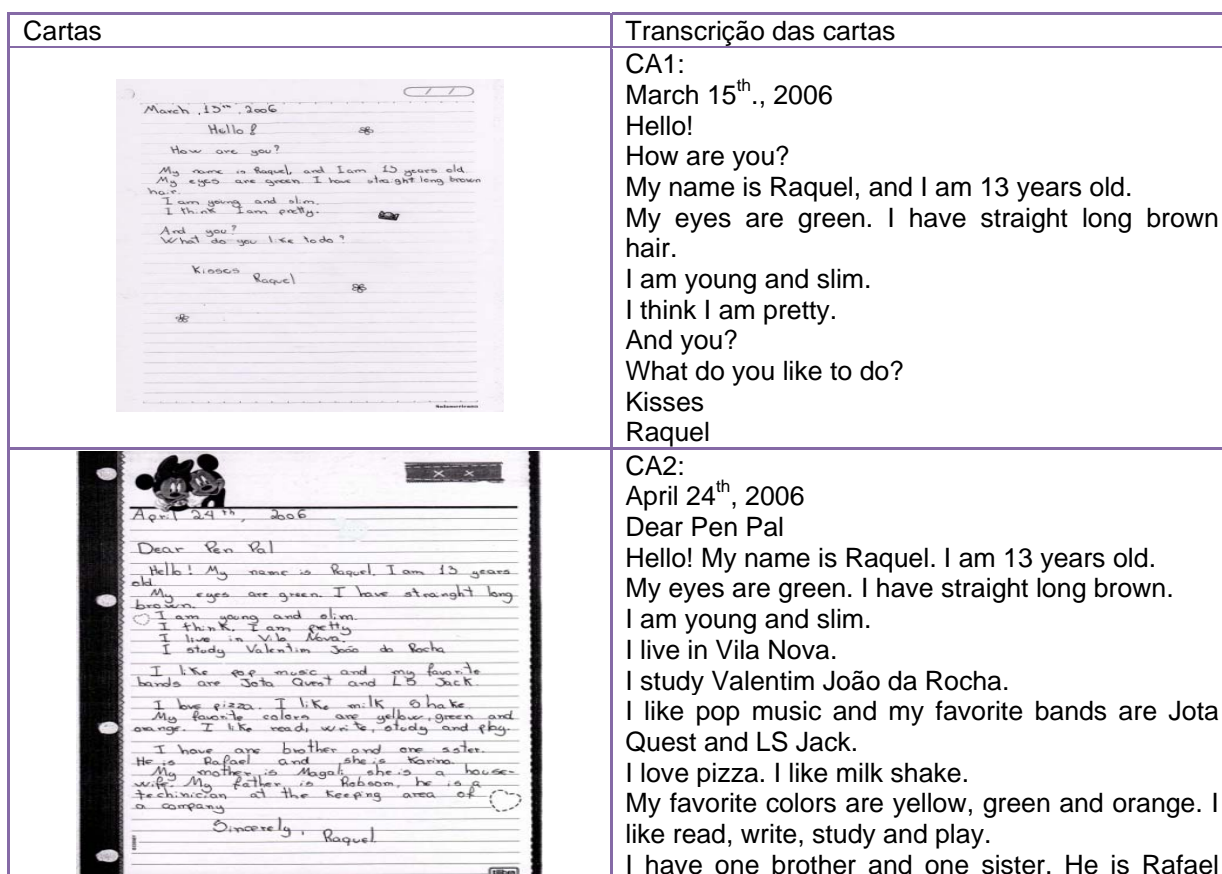 Cartas
Transcrição das cartas
March, 15th, 2006
Hello!
How are you?
My name is Raquel, and I am 13 years old.
My eyes are green. I have straight long brown
hair.
I am young and slim.
I think I am pretty.
And you?
What do you like to do?
Kisses
Raquel
CA1:
March 15th., 2006
Hello!
How are you?
My name is Raquel, and I am 13 years old.
My eyes are green. I have straight long brown
hair.
I am young and slim.
I think I am pretty.
And you?
What do you like to do?
Kisses
Raquel
April 24th, 2006
Dear Pen Pal
Hello! My name is Raquel. I am 13 years
old.
My eyes are green. I have strainght long
brown.
I am young and slim.
I think. I am pretty
I live in Vila Nova.
I study Valentim João da Rocha
I like pop music and my favorite
bands are Jota Quest and LS Jack.
I love pizza. I like milk shake
My favorite colors are yellow, green and
orange. I like read, write, study and play.
I have one brother and one sister.
He is Rafael and she is Karina.
My mother is Magali she is a house-
wife. My father is Robsom, he is a
techinician at the keeping area of
a company
Sincerely,
Raquel
CA2:
April 24th, 2006
Dear Pen Pal
Hello! My name is Raquel. I am 13 years old.
My eyes are green. I have straight long brown.
I am young and slim.
I live in Vila Nova.
I study Valentim João da Rocha.
I like pop music and my favorite bands are Jota
Quest and LS Jack.
I love pizza. I like milk shake.
My favorite colors are yellow, green and orange. I
like read, write, study and play.
I have one brother and one sister. He is Rafael